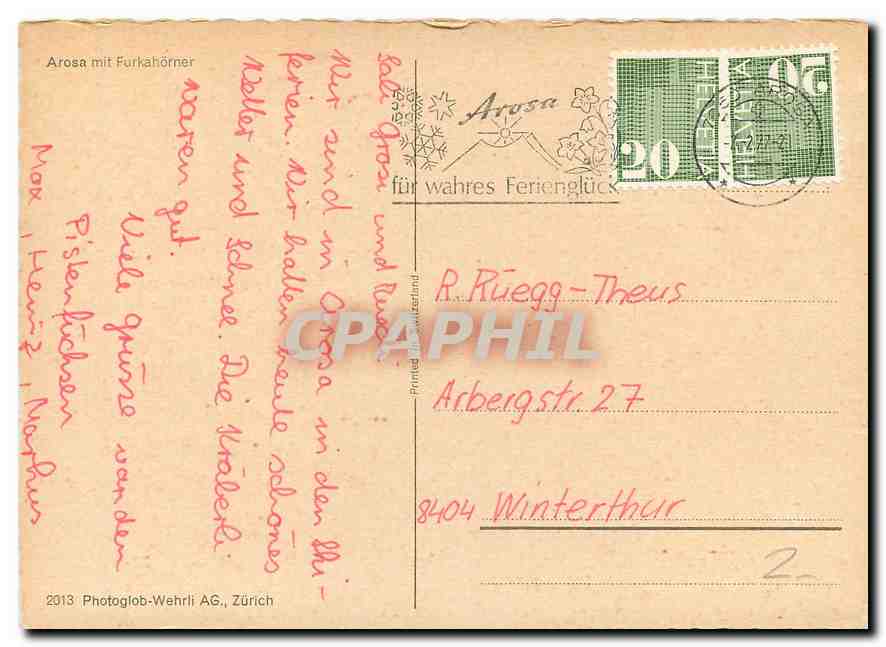 Arosa mit Furkahörner
Sali Grosi und
Wir sind in Arosa in den Ski-
ferien. Wir hatten heute schönes
Wetter und Schnee. Die Kräberli
waren gut.
Viele grüsse von den
Pistenfüchsen
Max, Heinz, Markus
2013 Photoglob-Wehrli AG., Zürich
Printed in Switzerland
Arosa
für wahres Ferienglück
AROSA
HELVETIA
20
HELVETIA
20
R. Rüegg-Theus
Arbergstr. 27
8404 Winterthur
2.-
CPAPHIL